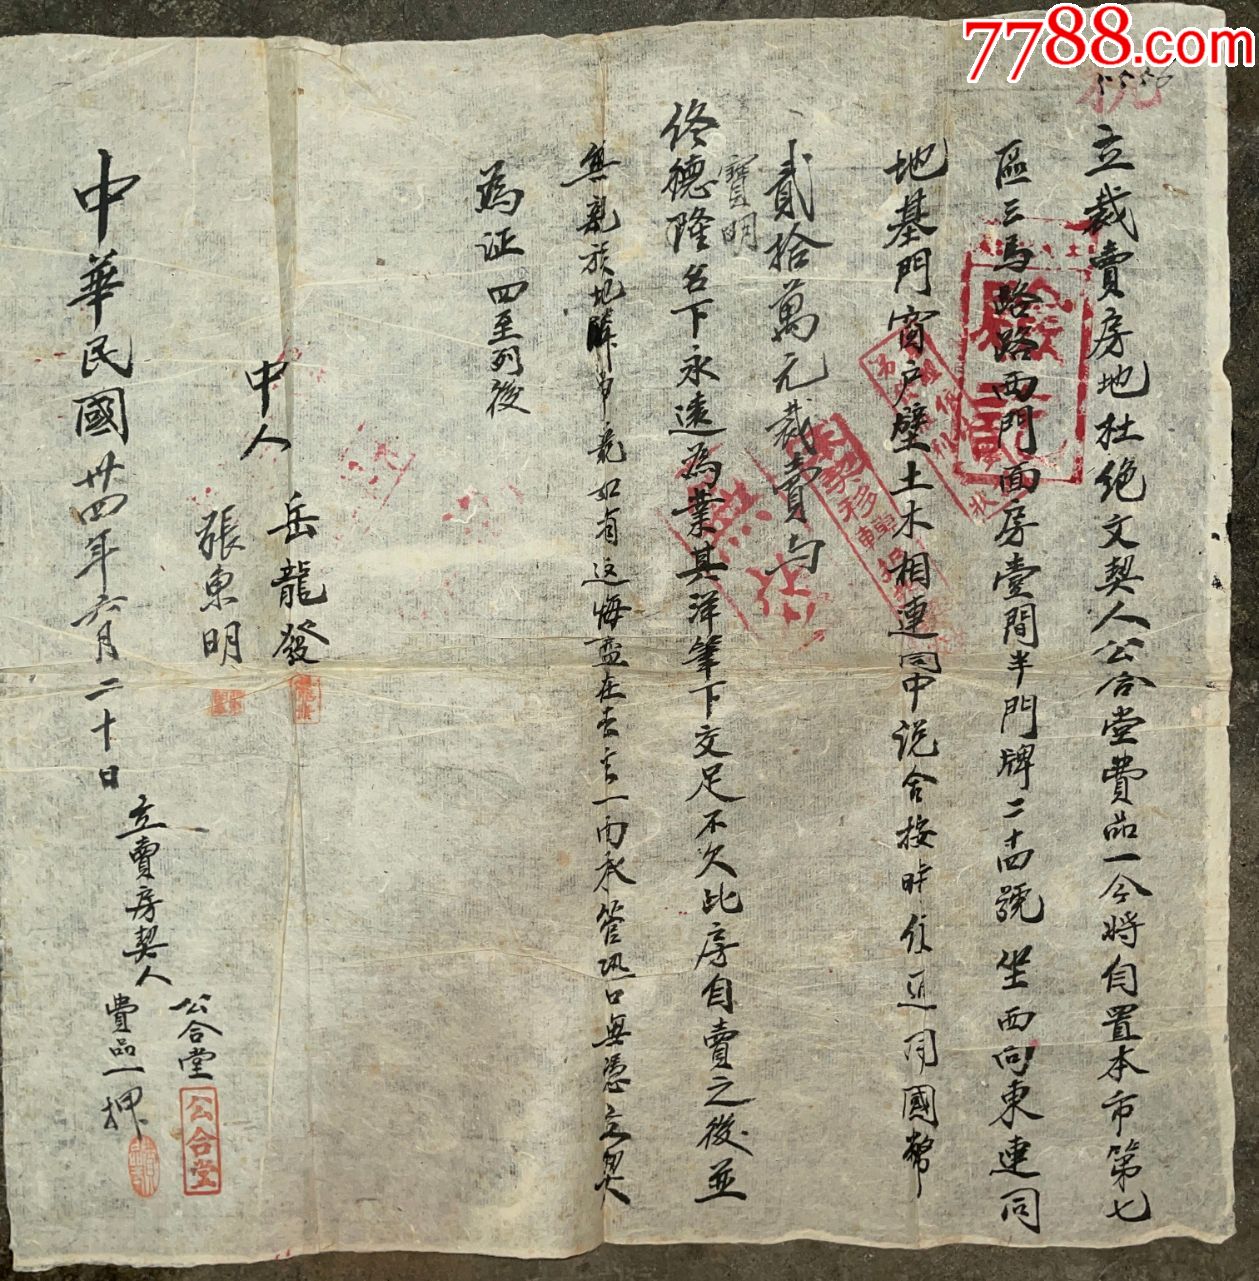 7788.com
立裁賣房地杜绝文契人公合堂費品一今將自置本市第七
區三馬路路西門面房壹間半門牌二十四號坐西向東連同
地基門窗户壁土木相連同中说合按時值同國幣
貳拾萬元裁賣与
寶明
佟德隆名下永遠為業其洋筆下交足不欠此房自賣之後並
無親族如有返悔在一面承管恐口無憑立契
為证四至列後
中人
岳龍發
張東明
中華民國卅四年六月二十日
立賣房契人
公合堂
費品一押
公合堂
驗訖